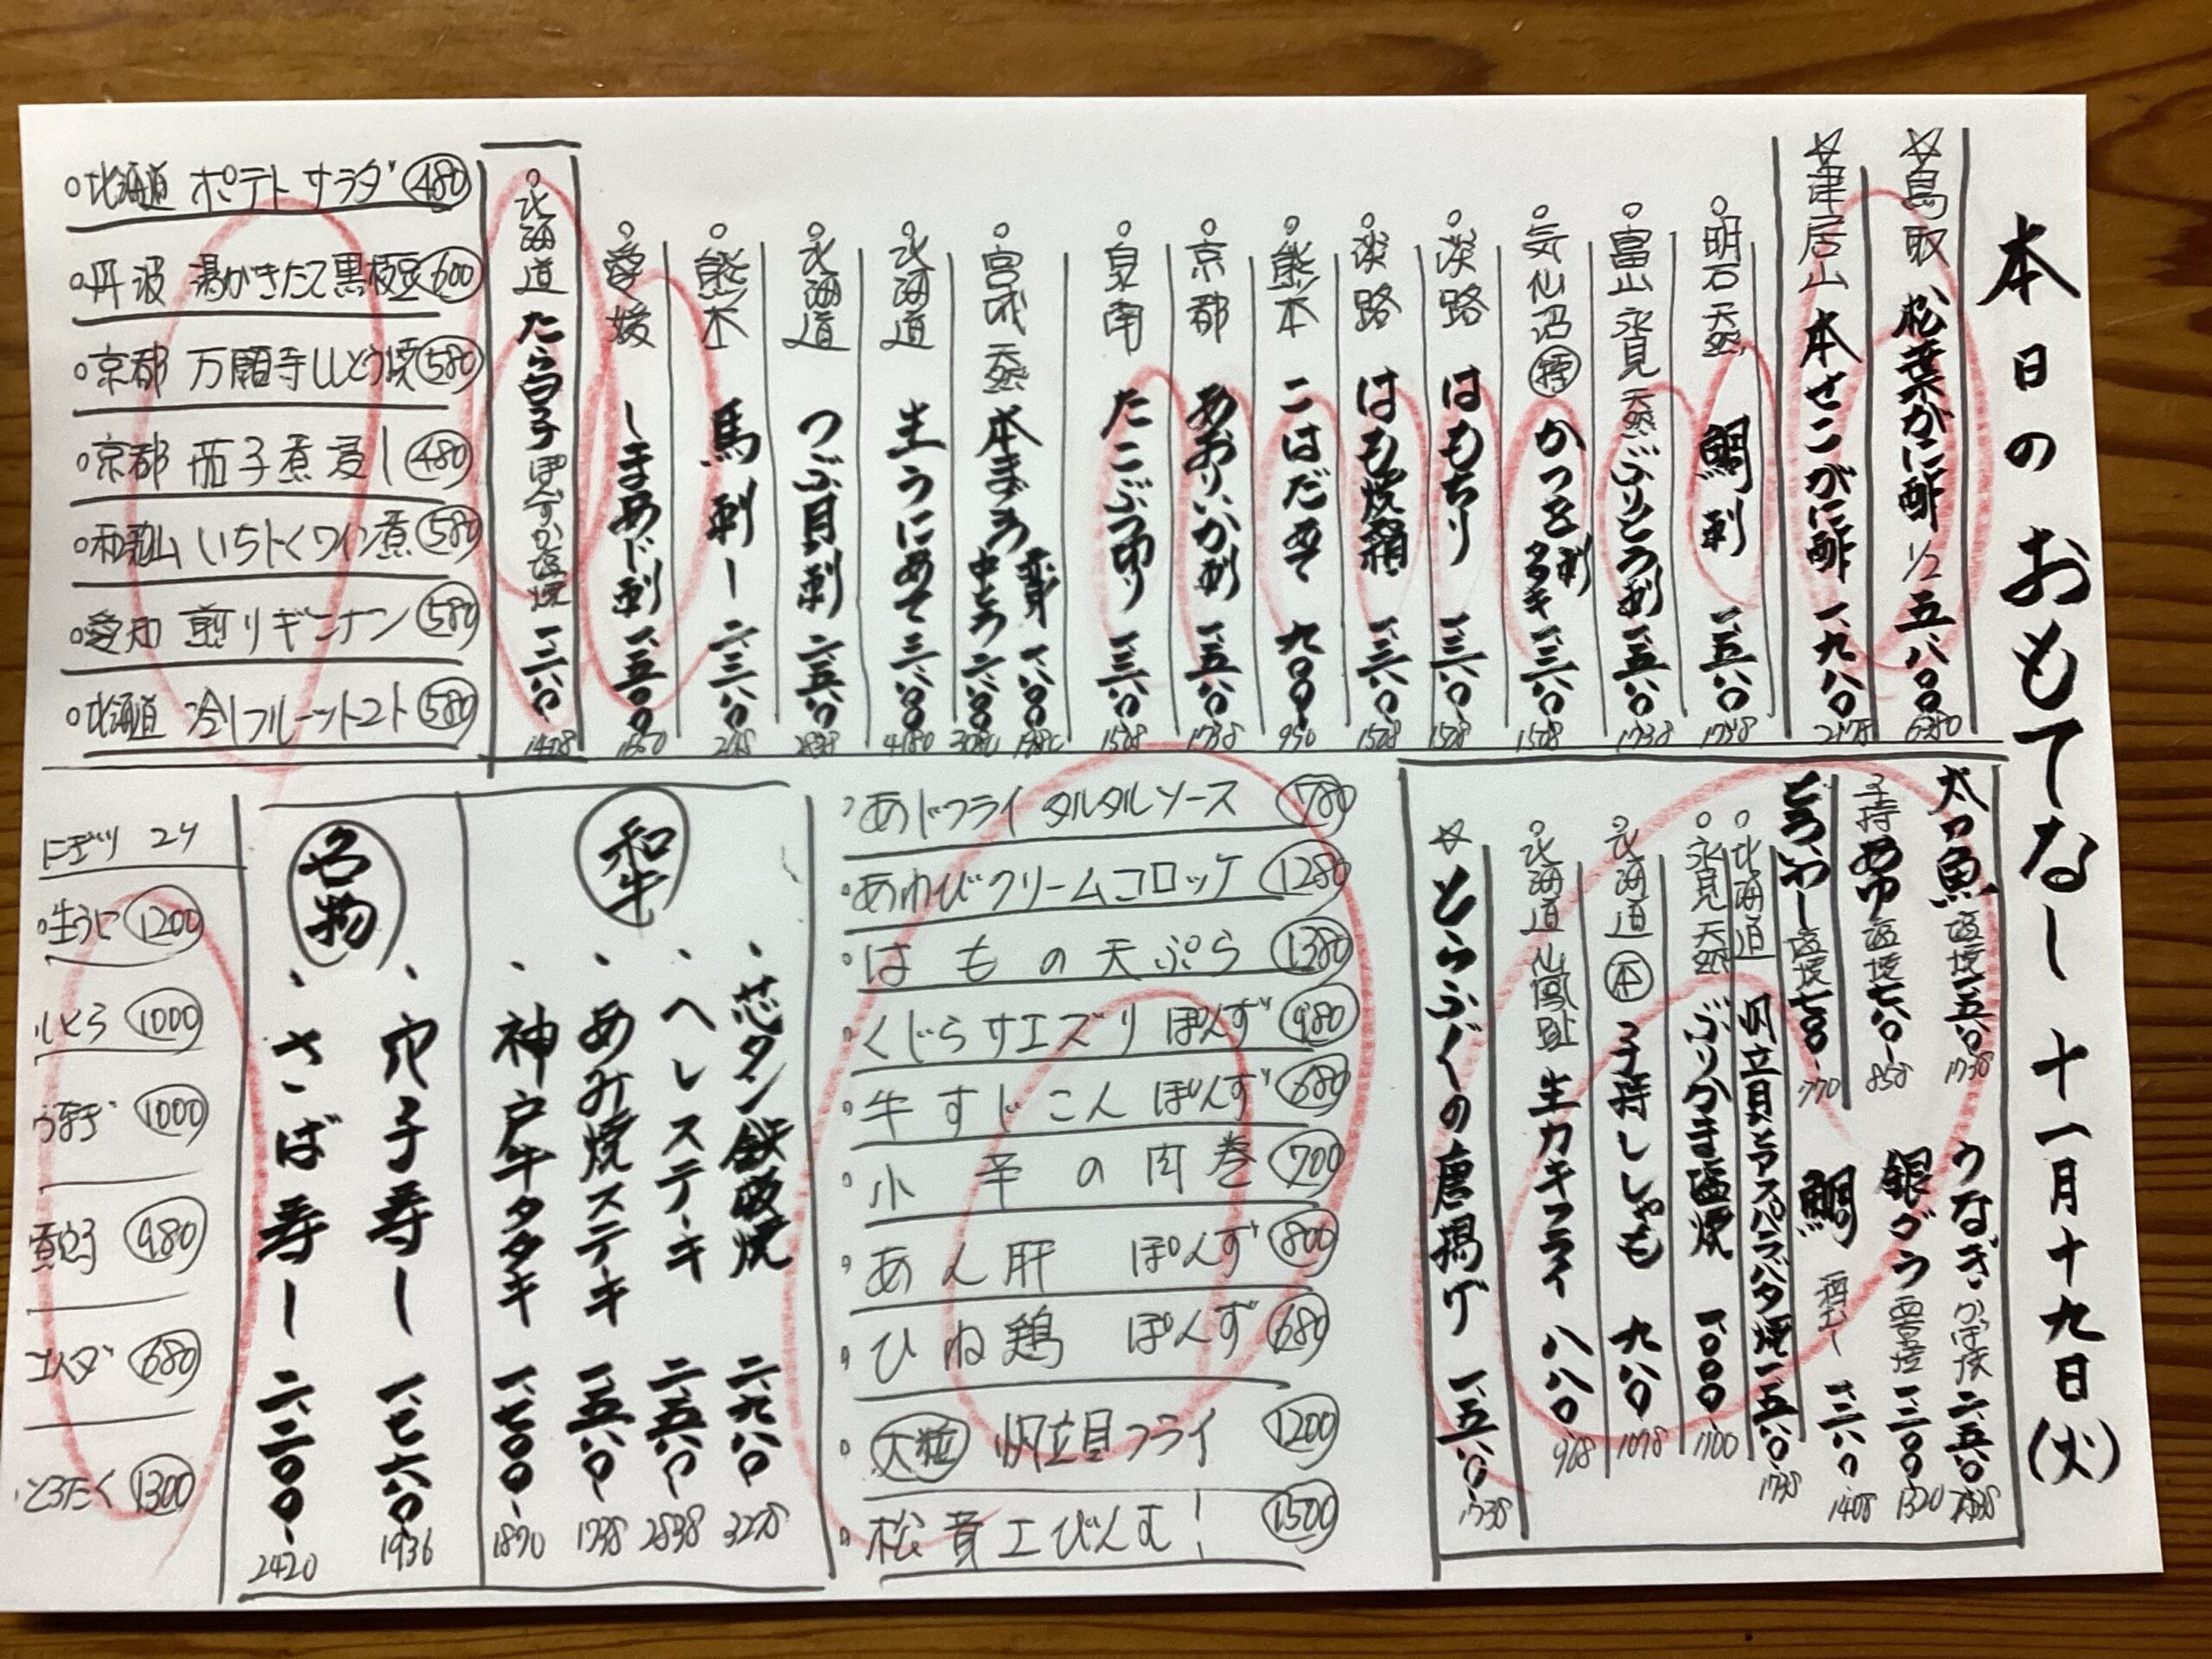 本日のおもてなし 十一月十九日(火)
☆鳥取 松葉がに酢 1/2 五、八〇〇 6380
☆津居山 本せこがに酢 一、九八〇 2178
明石 天然 鯛刺 一、五八〇 1738
富山 氷見 天然 ぶりとろ刺 一、五八〇 1738
気仙沼 かつを 刺 タタキ 一、三八〇 1518
淡路 はもちり 一、三八〇 1518
淡路 はも焼霜 一、三八〇 1518
熊本 こはだあて 九〇〇 990
京都 あおりいか刺 一、五八〇 1738
泉南 たこぶつ切り 一、三八〇 1518
宮城 天然 本まぐろ 赤身 一、八〇〇 1980 中とろ 二、八〇〇 3080
北海道 生うにあて 三、八〇〇 4180
北海道 つぶ貝刺 二、五八〇 2838
熊本 馬刺し 二、三八〇
愛媛 しまあじ刺 一、五〇〇
北海道 たら白子 ぽんずか塩焼 一、二八〇 1408
北海道 ポテトサラダ 480
丹波 湯がきたて黒枝豆 600
京都 万願寺ししとう焼 580
京都 茄子煮浸し 480
和歌山 いちじくワイン煮 580
愛知 煎りギンナン 580
北海道 冷しフルーツトマト 580
太刀魚 塩焼 一、五八〇 1738
うなぎ かば焼 二、五八〇 2838
子持 あゆ 塩焼 七八〇 858
銀ダラ 西京焼 一、二〇〇 1320
とろいわし 塩焼 七〇〇 770
鯛 酒蒸し 一、二八〇 1408
北海道 帆立貝とアスパラバター焼 一、五八〇 1738
氷見 天然 ぶりかま塩焼 一、〇〇〇 1100
北海道 本 子持ししゃも 九八〇 1078
北海道 仙鳳趾 生カキフライ 八八〇 968
☆とらふぐの唐揚げ 一、五八〇 1738
あじフライ タルタルソース 780
あわびクリームコロッケ 1280
はもの天ぷら 1380
くじらサエズリ ぽんず 980
牛すじこん ぽんず 680
小芋の肉巻 700
あん肝 ぽんず 800
ひね鶏 ぽんず 680
大粒 帆立貝フライ 1200
松茸土びんむし 1500
和牛
芯タン鉄板焼 二、九八〇 3278
ヘレステーキ 二、五八〇 2838
あみ焼ステーキ 一、五八〇 1738
神戸牛タタキ 一、七〇〇 1870
名物
穴子寿し 一、七六〇 1936
さば寿し 二、二〇〇 2420
にぎり 2ケ
生うに 1200
トロ 1000
うなぎ 1000
煮穴子 980
コハダ 680
とろたく 1300